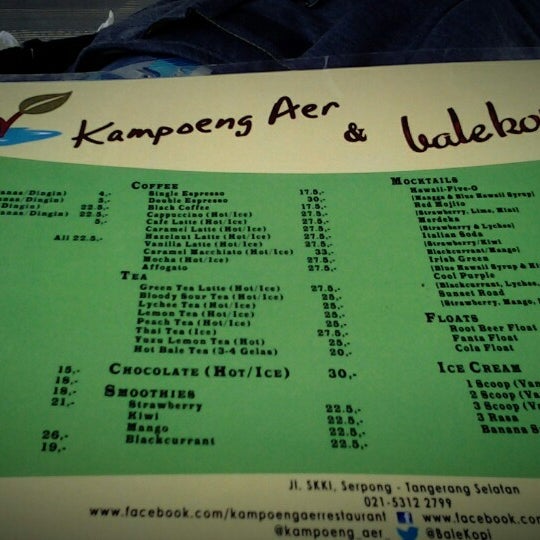 Kampoeng Aer & baleko
anas/Dingin) 4,-
anas/Dingin) 5,-
Dingin) 22.5,-
anas/Dingin) 22.5,-
5,-
All 22.5,-
15,-
18,-
18,-
21,-
26,-
19,-
COFFEE
Single Espresso 17.5,-
Double Espresso 30,-
Black Coffee 17.5,-
Cappuccino (Hot/Ice) 27.5,-
Cafe Latte (Hot/Ice) 27.5,-
Caramel Latte (Hot/Ice) 27.5,-
Hazelnut Latte (Hot/Ice) 27.5,-
Vanilla Latte (Hot/Ice) 27.5,-
Caramel Macchiato (Hot/Ice) 33,-
Mocha (Hot/Ice) 27.5,-
Affogato 27.5,-
TEA
Green Tea Latte (Hot/Ice) 27.5,-
Bloody Sour Tea (Hot/Ice) 25,-
Lychee Tea (Hot/Ice) 25,-
Lemon Tea (Hot/Ice) 25,-
Peach Tea (Hot/Ice) 25,-
Thai Tea (Ice) 27.5,-
Yuzu Lemon Tea (Hot) 25,-
Hot Bale Tea (3-4 Gelas) 20,-
CHOCOLATE (HOT/ICE) 30,-
SMOOTHIES
Strawberry 22.5,-
Kiwi 22.5,-
Mango 22.5,-
Blackcurrant 22.5,-
MOCKTAILS
Hawaii-Five-O
(Mangga & Blue Hawaii Syrup)
Red Mojito
(Strawberry, Lime, Mint)
Merdeka
(Strawberry & Lychee)
Italian Soda
(Strawberry/Kiwi
Blackcurrant/Mango)
Irish Green
(Blue Hawaii Syrup &
Cool Purple
(Blackcurrant, Lychee,
Sunset Road
(Strawberry, Mango,
FLOATS
Root Beer Float
Fanta Float
Cola Float
ICE CREAM
1 Scoop (Van
2 Scoop (Va
3 Scoop (V
3 Rasa
Banana S
Jl. SKKI, Serpong - Tangerang Selatan
021-5312 2799
www.facebook.com/kampoengaerrestaurant f www.facebook.com
@kampoeng_aer_ @BaleKopi